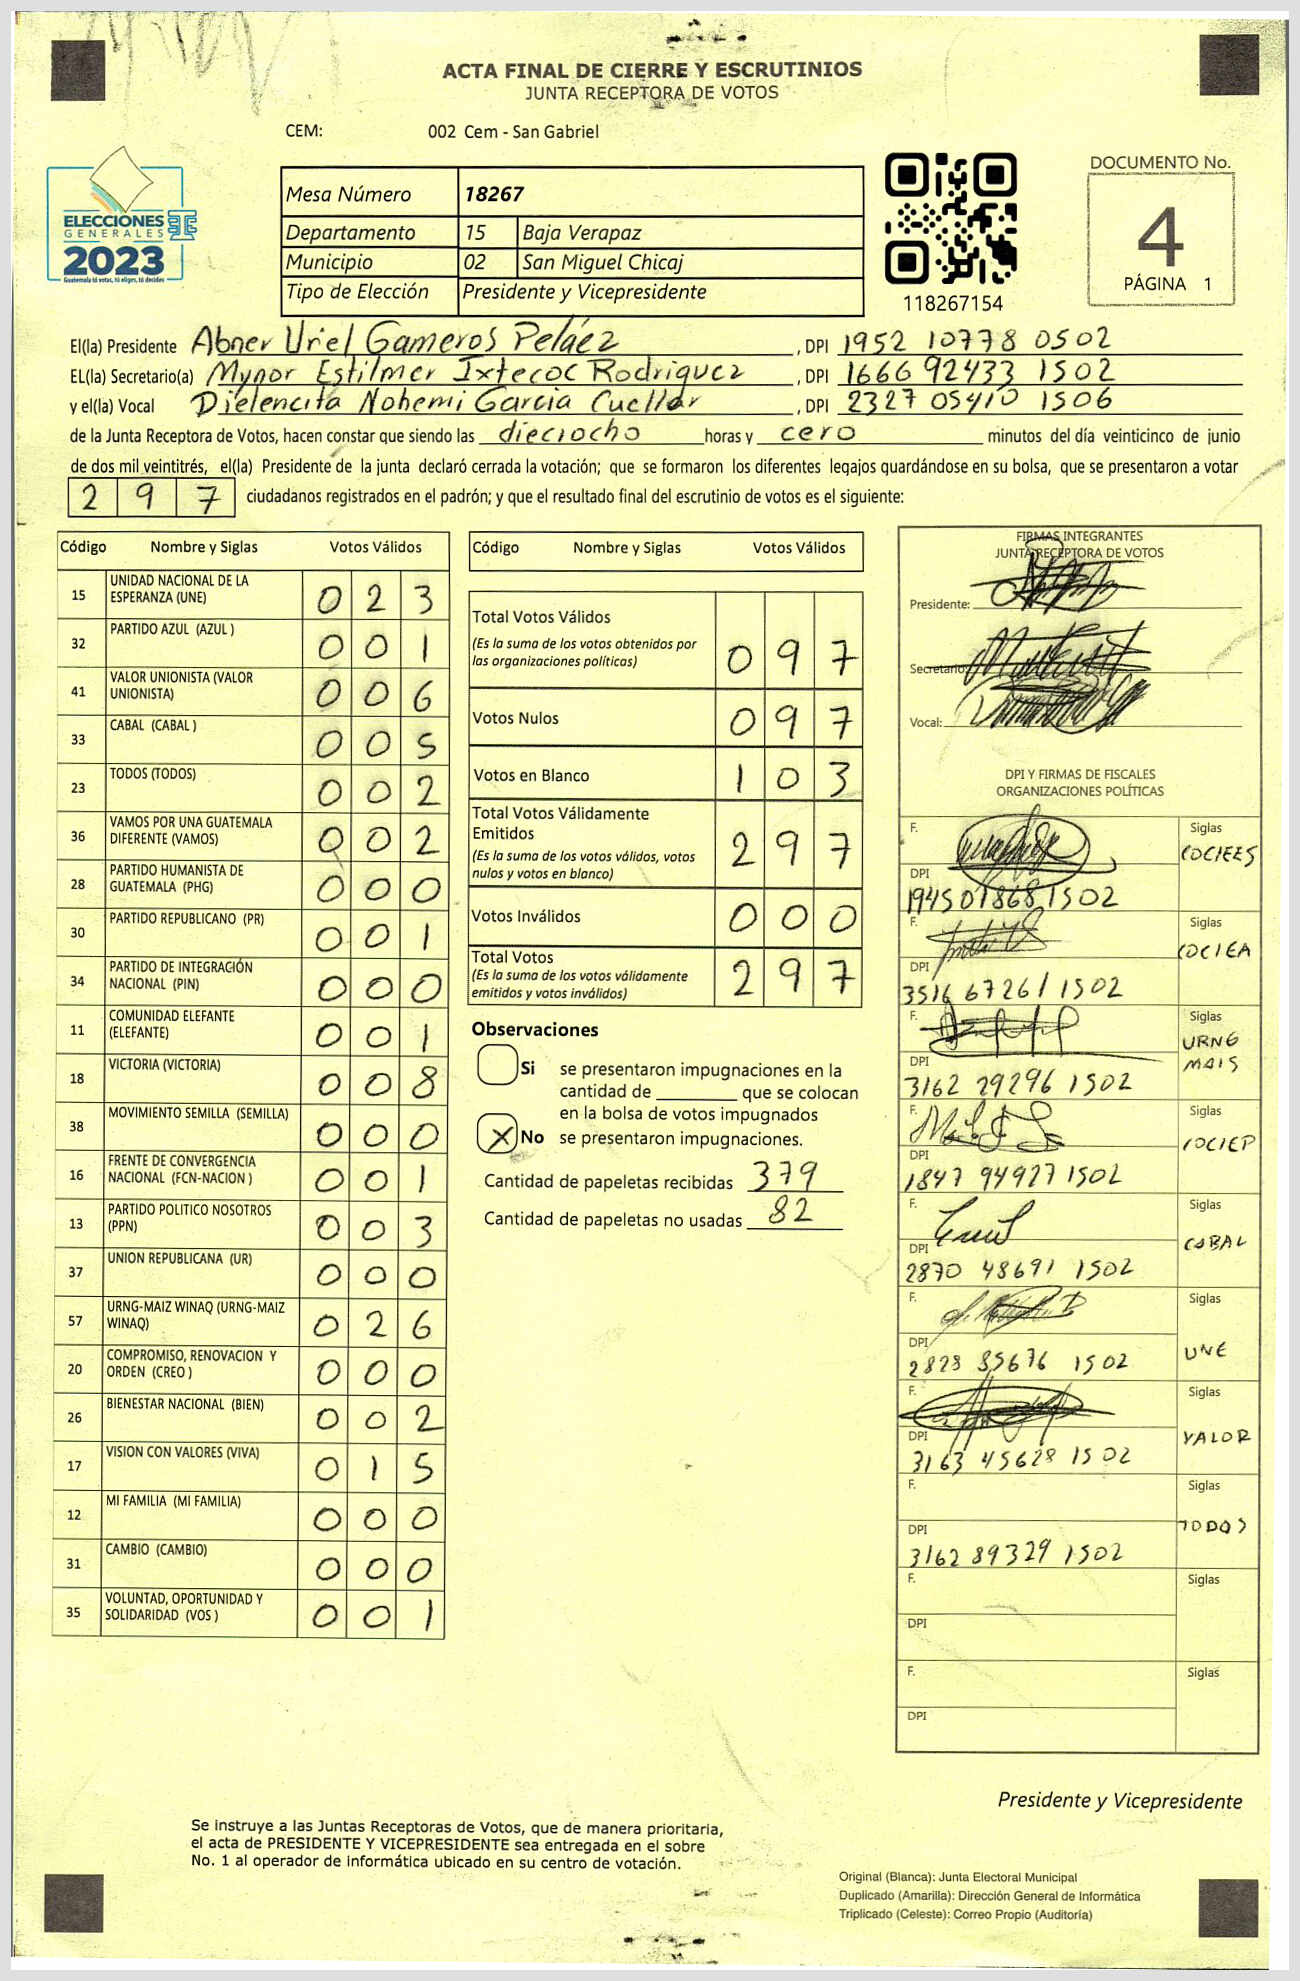 ACTA FINAL DE CIERRE Y ESCRUTINIOS
JUNTA RECEPTORA DE VOTOS
CEM: 002 Cem - San Gabriel
ELECCIONES
GENERALES
2023
Guatemala tú votas, tú eliges, tú decides
Mesa Número 18267
Departamento 15 Baja Verapaz
Municipio 02 San Miguel Chicaj
Tipo de Elección Presidente y Vicepresidente
118267154
DOCUMENTO No.
4
PÁGINA 1
El(la) Presidente Abner Uriel Gameros Peláez, DPI 1952 10778 0502
EL(la) Secretario(a) Mynor Estilmer Ixtecoc Rodriguez, DPI 1666 92433 1502
y el(la) Vocal Dielencita Nohemi Garcia Cuellar, DPI 2327 05410 1506
de la Junta Receptora de Votos, hacen constar que siendo las dieciocho horas y cero minutos del día veinticinco de junio
de dos mil veintitrés, el(la) Presidente de la junta declaró cerrada la votación; que se formaron los diferentes legajos guardándose en su bolsa, que se presentaron a votar
297 ciudadanos registrados en el padrón; y que el resultado final del escrutinio de votos es el siguiente:
Código Nombre y Siglas Votos Válidos
15 UNIDAD NACIONAL DE LA ESPERANZA (UNE) 023
32 PARTIDO AZUL (AZUL ) 001
41 VALOR UNIONISTA (VALOR UNIONISTA) 006
33 CABAL (CABAL ) 005
23 TODOS (TODOS) 002
36 VAMOS POR UNA GUATEMALA DIFERENTE (VAMOS) 002
28 PARTIDO HUMANISTA DE GUATEMALA (PHG) 000
30 PARTIDO REPUBLICANO (PR) 001
34 PARTIDO DE INTEGRACIÓN NACIONAL (PIN) 000
11 COMUNIDAD ELEFANTE (ELEFANTE) 001
18 VICTORIA (VICTORIA) 008
38 MOVIMIENTO SEMILLA (SEMILLA) 000
16 FRENTE DE CONVERGENCIA NACIONAL (FCN-NACION ) 001
13 PARTIDO POLITICO NOSOTROS (PPN) 003
37 UNION REPUBLICANA (UR) 000
57 URNG-MAIZ WINAQ (URNG-MAIZ WINAQ) 026
20 COMPROMISO, RENOVACION Y ORDEN (CREO ) 000
26 BIENESTAR NACIONAL (BIEN) 002
17 VISION CON VALORES (VIVA) 015
12 MI FAMILIA (MI FAMILIA) 000
31 CAMBIO (CAMBIO) 000
35 VOLUNTAD, OPORTUNIDAD Y SOLIDARIDAD (VOS ) 001
Código Nombre y Siglas Votos Válidos
Total Votos Válidos 097
(Es la suma de los votos obtenidos por
las organizaciones políticas)
Votos Nulos 097
Votos en Blanco 103
Total Votos Válidamente
Emitidos 297
(Es la suma de los votos válidos, votos
nulos y votos en blanco)
Votos Inválidos 000
Total Votos 297
(Es la suma de los votos válidamente
emitidos y votos inválidos)
Observaciones
Si se presentaron impugnaciones en la
cantidad de ________ que se colocan
en la bolsa de votos impugnados
X No se presentaron impugnaciones.
Cantidad de papeletas recibidas 379
Cantidad de papeletas no usadas 82
FIRMAS INTEGRANTES
JUNTA RECEPTORA DE VOTOS
Presidente:
Secretario:
Vocal:
DPI Y FIRMAS DE FISCALES
ORGANIZACIONES POLÍTICAS
F. Siglas
COCIEES
DPI
1945 01868 1502
F. Siglas
COCIEA
DPI
3516 67261 1502
F. Siglas
URNG
MAIS
DPI
3162 29296 1502
F. Siglas
COCIEP
DPI
1847 94927 1502
F. Siglas
CABAL
DPI
2870 48691 1502
F. Siglas
UNE
DPI
2828 85676 1502
F. Siglas
VALOR
DPI
3163 45628 1502
F. Siglas
TODOS
DPI
3162 89329 1502
F. Siglas
DPI
F. Siglas
DPI
Presidente y Vicepresidente
Se instruye a las Juntas Receptoras de Votos, que de manera prioritaria,
el acta de PRESIDENTE Y VICEPRESIDENTE sea entregada en el sobre
No. 1 al operador de informática ubicado en su centro de votación.
Original (Blanca): Junta Electoral Municipal
Duplicado (Amarilla): Dirección General de Informática
Triplicado (Celeste): Correo Propio (Auditoría)